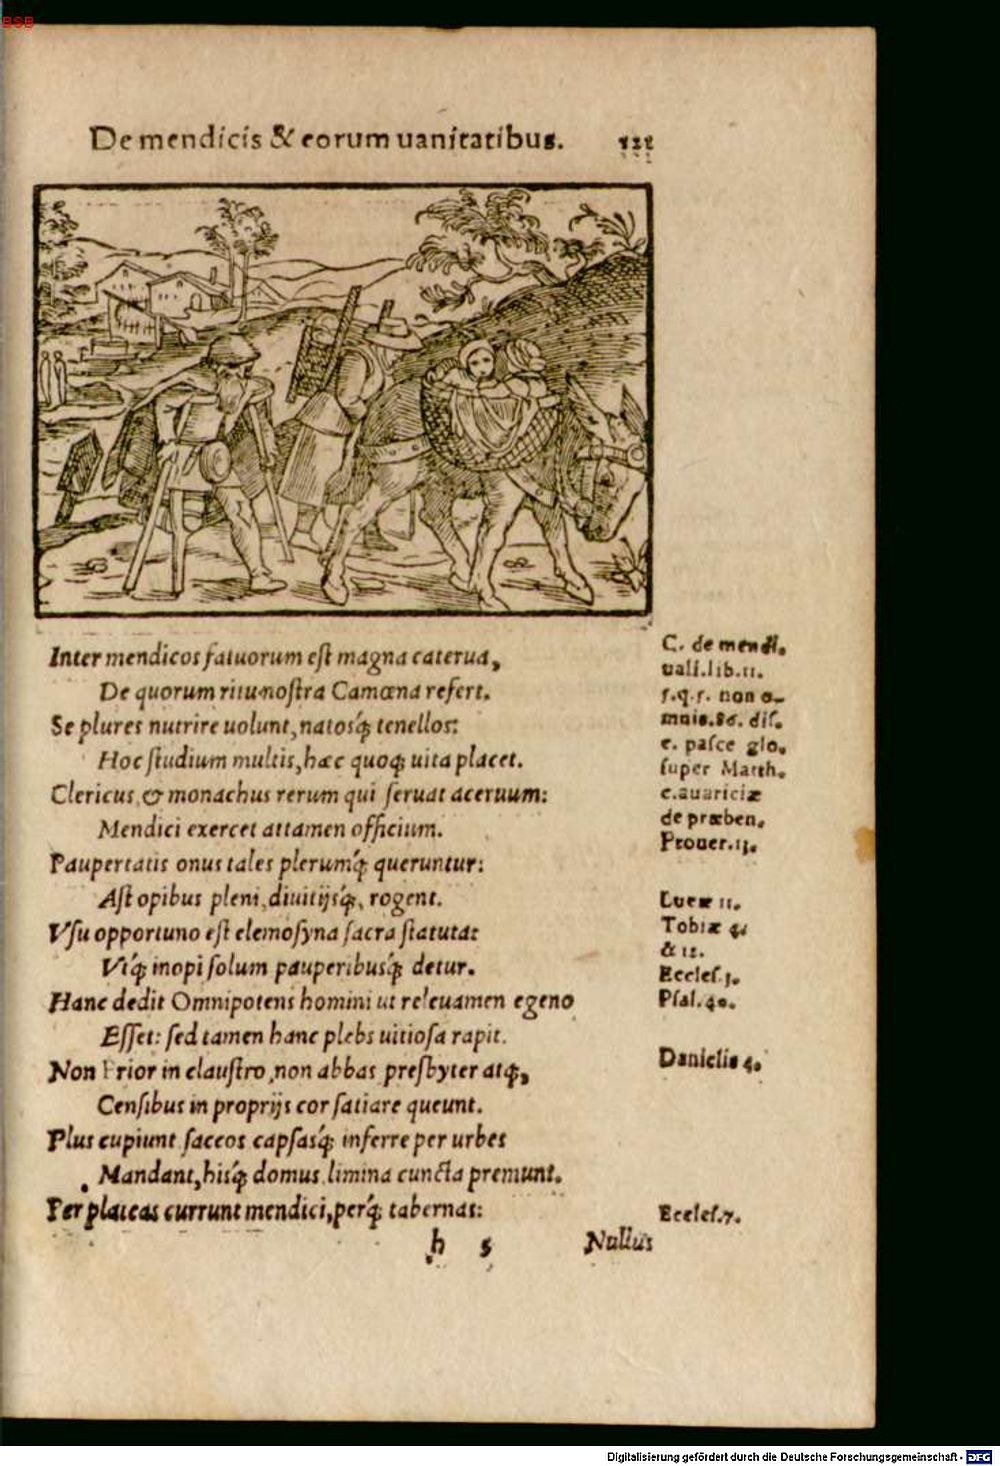 BSB
De mendicis & eorum uanitatibus. 121
Inter mendicos fatuorum est magna caterua,
De quorum ritu nostra Camœna refert.
Se plures nutrire uolunt, natosq́; tenellos:
Hoc studium multis, hæc quoq; uita placet.
Clericus, & monachus rerum qui seruat aceruum:
Mendici exercet attamen officium.
Paupertatis onus tales plerumq́; queruntur:
Ast opibus pleni, diuitijsq́;, rogent.
Vsu opportuno est elemosyna sacra statuta:
Vtq́; inopi solum pauperibusq́; detur.
Hanc dedit Omnipotens homini ut releuamen egeno
Esset: sed tamen hanc plebs uitiosa rapit.
Non Prior in claustro, non abbas presbyter atq́;,
Censibus in proprijs cor satiare queunt.
Plus cupiunt saccos capsasq́; inferre per urbes
Mandant, hisq́; domus limina cuncta premunt.
Per plateas currunt mendici, perq́; tabernas:
h 5 Nullus
C. de mendi.
uali. lib. 11.
s. q. 5. non o-
mnis. 86. dis.
c. pasce glo.
super Matth.
c. auariciæ
de præben.
Prouer. 13.
Lucæ 11.
Tobiæ 4.
& 12.
Eccles. 5.
Psal. 40.
Danielis 4.
Eccles. 7.
Digitalisierung gefördert durch die Deutsche Forschungsgemeinschaft - DFG